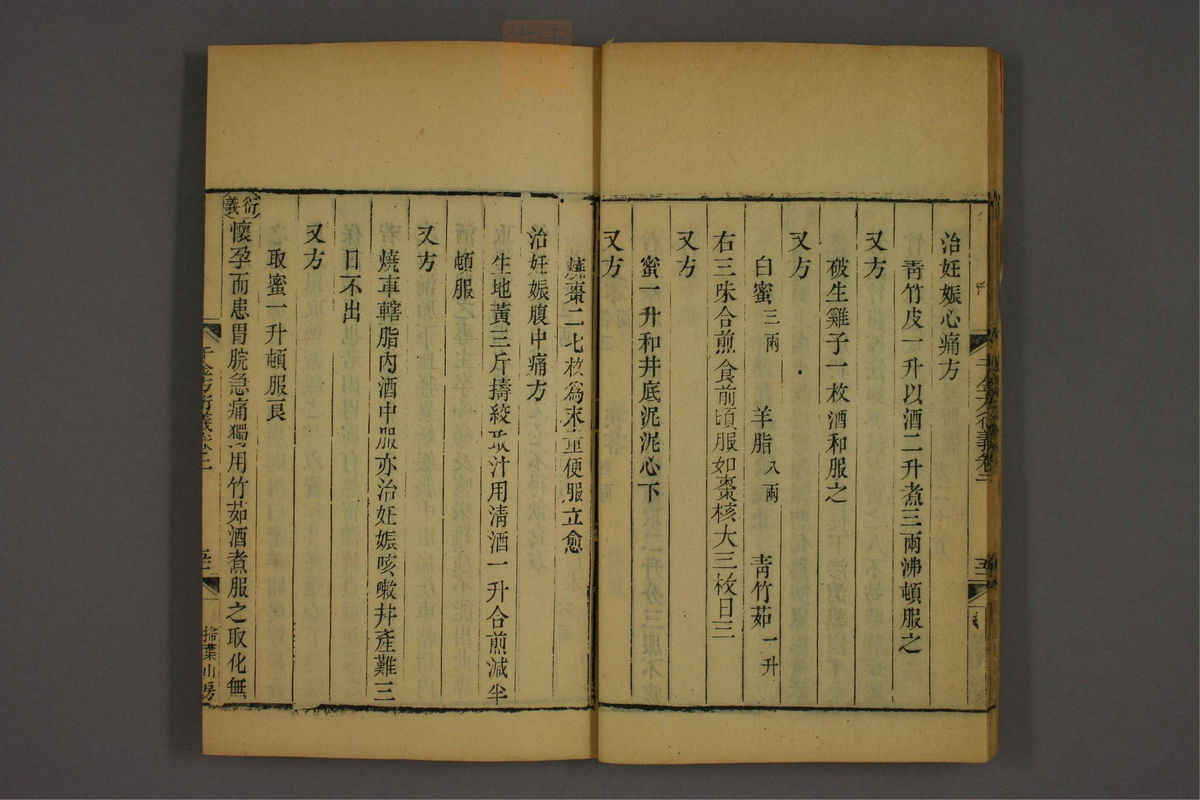 治妊娠心痛方
青竹皮一升以酒二升煮三兩沸頓服之
又方
破生雞子一枚酒和服之
又方
白蜜三兩 羊脂八兩 青竹茹一升
右三味合煎食前頃服如棗核大三枚日三
又方
蜜一升和井底泥泥心下
又方
燒棗二七枚爲末童便服立愈
治妊娠腹中痛方
生地黃三斤擣絞取汁用清酒一升合煎減半
頓服
又方
燒車轄脂內酒中服亦治妊娠咳嗽并產難三
日不出
又方
取蜜一升頓服良
衍義 懷孕而患胃脘急痛獨用竹茹酒煮服之取化無
千金方衍義卷二
掃葉山房